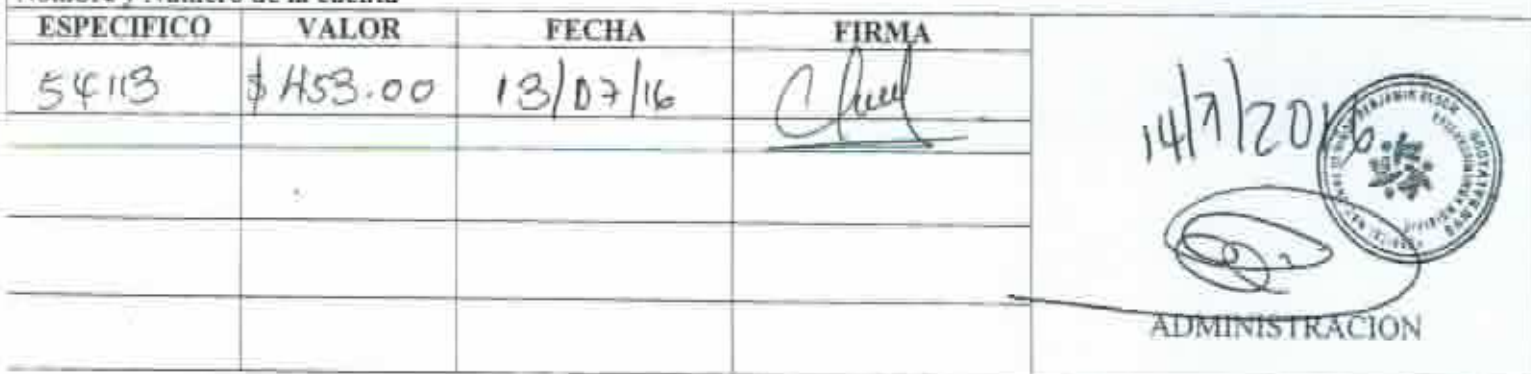 ESPECIFICO VALOR FECHA FIRMA
54113 $ 453.00 13/07/16
14/7/2016
ADMINISTRACION